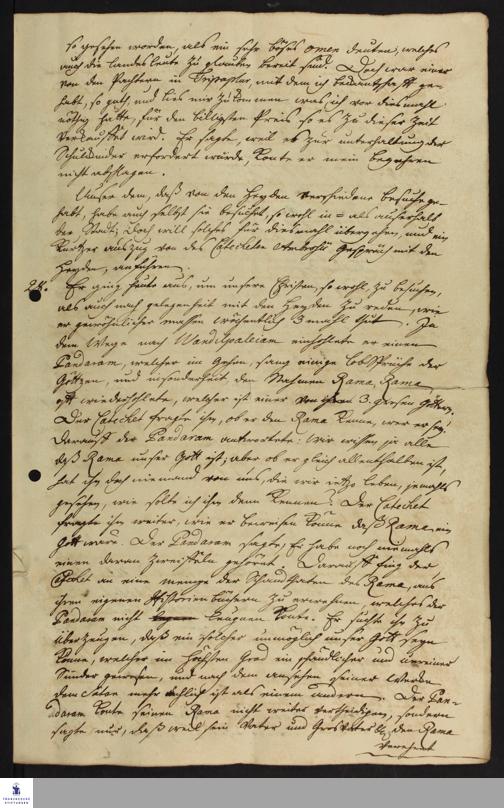 so gesehen worden, als ein sehr böses omen deuten, welches
auch die Landesleute zu glauben bereit sind. Doch war einer
von den Pachtern in, mit dem ich bekantschaft ge-
habt, so gut, und lies mir zukommen was ich vor diesmahl
nöthig hatte, für den billigsten Preis so es zu dieser Zeit
verkauffet wird. Er sagte, weil es zur unterhaltung der
Schulkinder erfordert würde, könte er mein begehren
nicht abschlagen.
Ausser dem, daß von den Heyden verschiedene besuche ge-
habt, habe auch selbst sie besuchet, so wohl in- als auserhalb
der Stadt; Doch will solches für diesmahl übergehen, und ein
kurtzer auszug von des Catecheten Ambrosii Gespräch mit den
Heyden, anführen.
28. Er ging heute aus, um unsere Christen, so wohl, zu besuchen,
als auch nach gelegenheit mit den Heyden zu reden, wie
er gewöhnlicher massen wöchentlich 3 mahl thut. In
dem Wege nach einhohlete er einen
Pandaram, welcher im Gehen, sang einige lobsprüche der
Götzen, und insonderheit den Nahmen Rama, Rama,
oft wiederhohlete, welcher ist einer von ihren 3. grosen Göttern.
Der Catechet fragte ihn, ob er den Rama kenne, wer er sey?
Darauf der Pandaram antwortete: Wir wissen ja alle
daß Rama unser Gott ist; aber ob er gleich allenthalben ist,
hat ihn doch niemand von uns, die wir jetzo leben, jemahls
gesehen, wie solte ich ihn denn kennen? Der Catechet
fragte ihn weiter, wie er beweisen könne daß Rama, ein
Gott wäre. Der Pandaram sagte, Er habe noch niemahls
einen daran zweiffeln gehöret. Darauf fing der
Catechet an eine menge der Schandthaten des Rama, aus
ihren eigenen Historienbüchern zu erwehnen, welches der
Pandaram nicht leugnen konte. Er suchte ihn zu
überzeugen, daß ein solcher unmöglich unser Gott seyn
könne, welcher im höchsten Grad ein schändlicher und unreiner
Sünder gewesen, und nach dem ansehen seiner Werke
dem Satan mehr ehnlich ist als einem andern. Der Pan-
daram konte seinen Rama nicht weiter vertheidigen, sondern
sagte nur, daß weil sein Vater und Grosvater den Rama
verehret